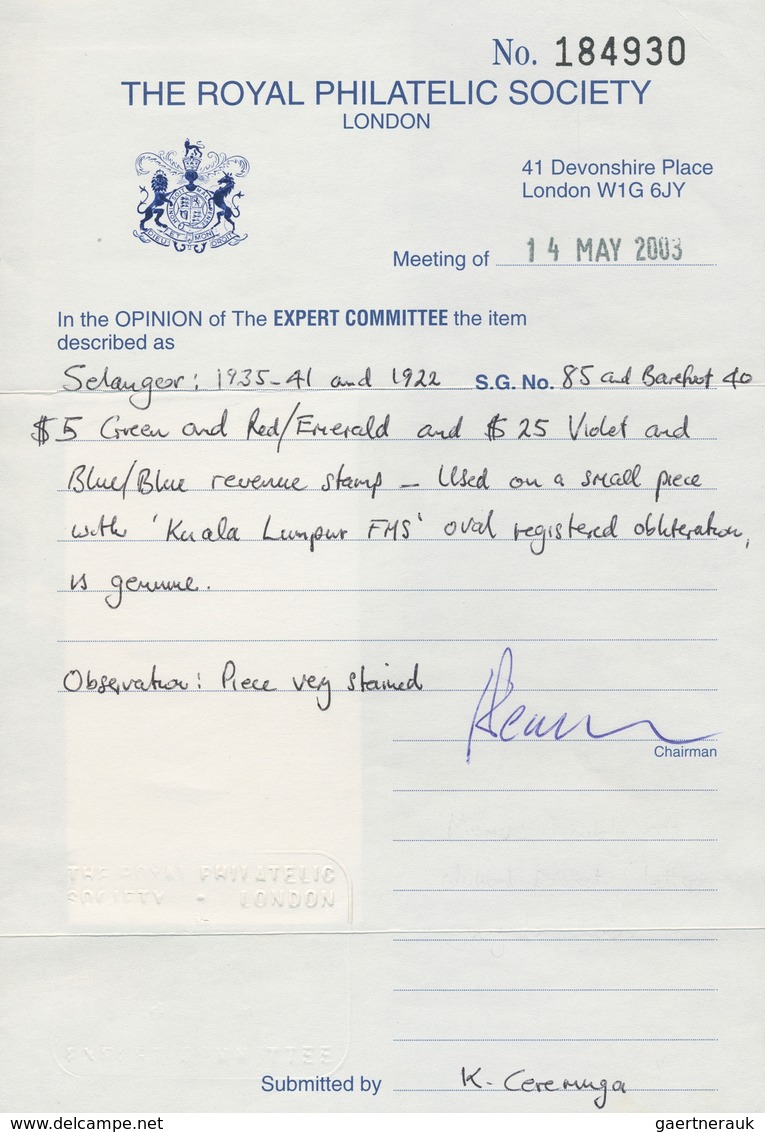 No. 184930
THE ROYAL PHILATELIC SOCIETY
LONDON
41 Devonshire Place
London W1G 6JY
DIEU ET MON DROIT
Meeting of 14 MAY 2003
In the OPINION of The EXPERT COMMITTEE the item
described as
Selangor: 1935-41 and 1922 S.G. No. 85 and Barefoot 40
$5 Green and Red/Emerald and $25 Violet and
Blue/Blue revenue stamp - Used on a small piece
with 'Kuala Lumpur FMS' oval registered obliteration,
is genuine.
Observation: Piece very stained
Chairman
THE ROYAL PHILATELIC
SOCIETY • LONDON
EXPERT COMMITTEE
Submitted by K. Ceremuga
www.delcampe.net
gaertnerauk